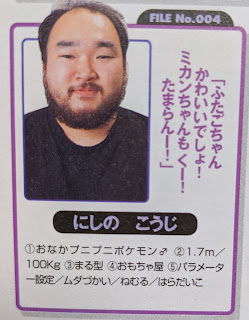 FILE No.004
「ふたごちゃん
かわいいでしょ！
ミカンちゃんもくー！
たまらんー！」
にしの　こうじ
①おなかプニプニポケモン♂ ②1.7m／
100Kg ③まる型 ④おもちゃ屋 ⑤パラメータ
ー設定／ムダづかい／ねむる／はらだいこ